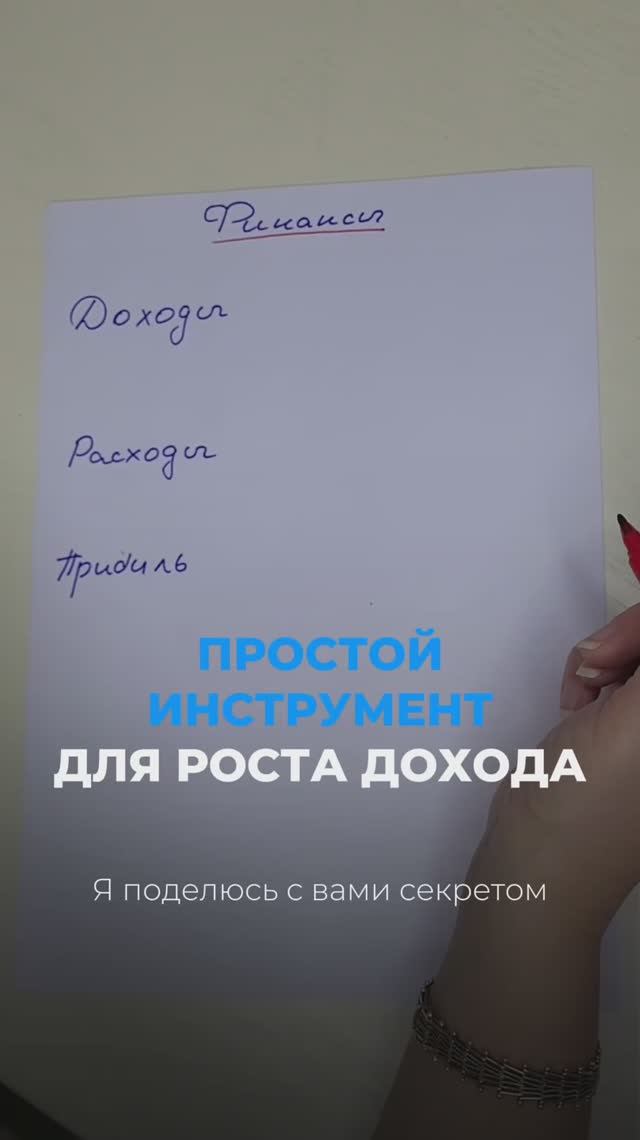 Финансы
Доходы
Расходы
Прибиль
ПРОСТОЙ
ИНСТРУМЕНТ
ДЛЯ РОСТА ДОХОДА
Я поделюсь с вами секретом